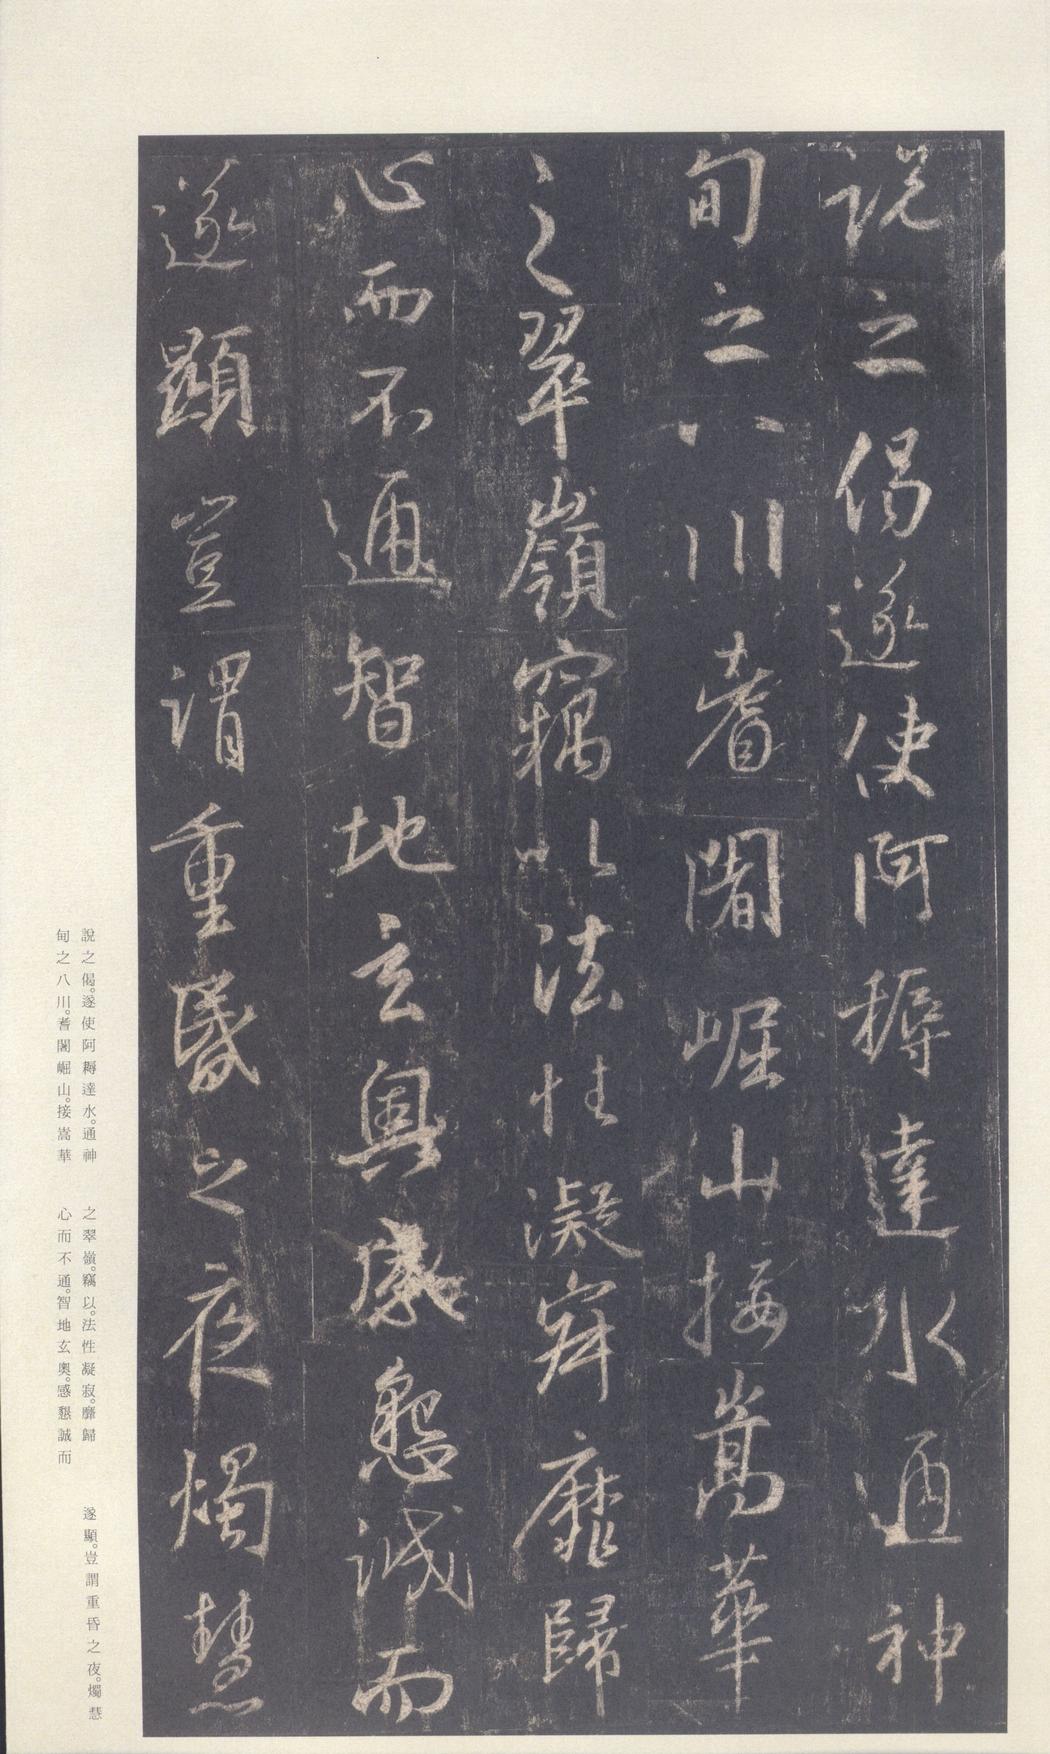 說之偈遂使阿耨達水通神
甸之八川耆闍崛山接嵩華
之翠嶺竊以法性凝寂靡歸
心而不通智地玄奧感懇誠而
遂顯豈謂重昏之夜燭慧
說之偈。遂使阿耨達水。通神
甸之八川。耆闍崛山。接嵩華
之翠嶺。竊以。法性凝寂。靡歸
心而不通。智地玄奧。感懇誠而
遂顯。豈謂重昏之夜。燭慧